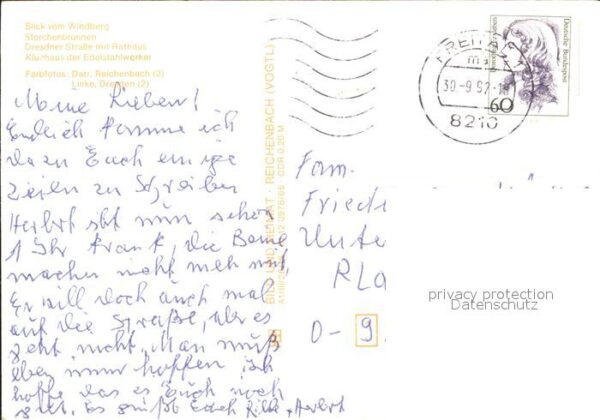 Blick vom Windberg
Storchenbrunnen
Dresdner Straße mit Rathaus
Klubhaus der Edelstahlwerker
Farbfotos: Datr, Reichenbach (2)
Linke, Dresden (2)
Meine Lieben!
Endlich komme ich
dazu Euch einige
Zeilen zu schreiben
Herbert ist nun schon
1 Jhr krank, die Beine
machen nicht mehr mit,
Er will doch auch mal
auf die Straße, aber es
geht nicht. Man muß
eben immer hoffen. Ich
hoffe das es Euch noch
gut. Es grüßt Euch Herbert
BILD UND HEIMAT · REICHENBACH (VOGTL)
DDR 0,20 M
FREITAL
30.-9.92.-18
8210
Deutsche Bundespost
60
Fam.
Friedr
Unte
RLa
O - 9
privacy protection
Datenschutz